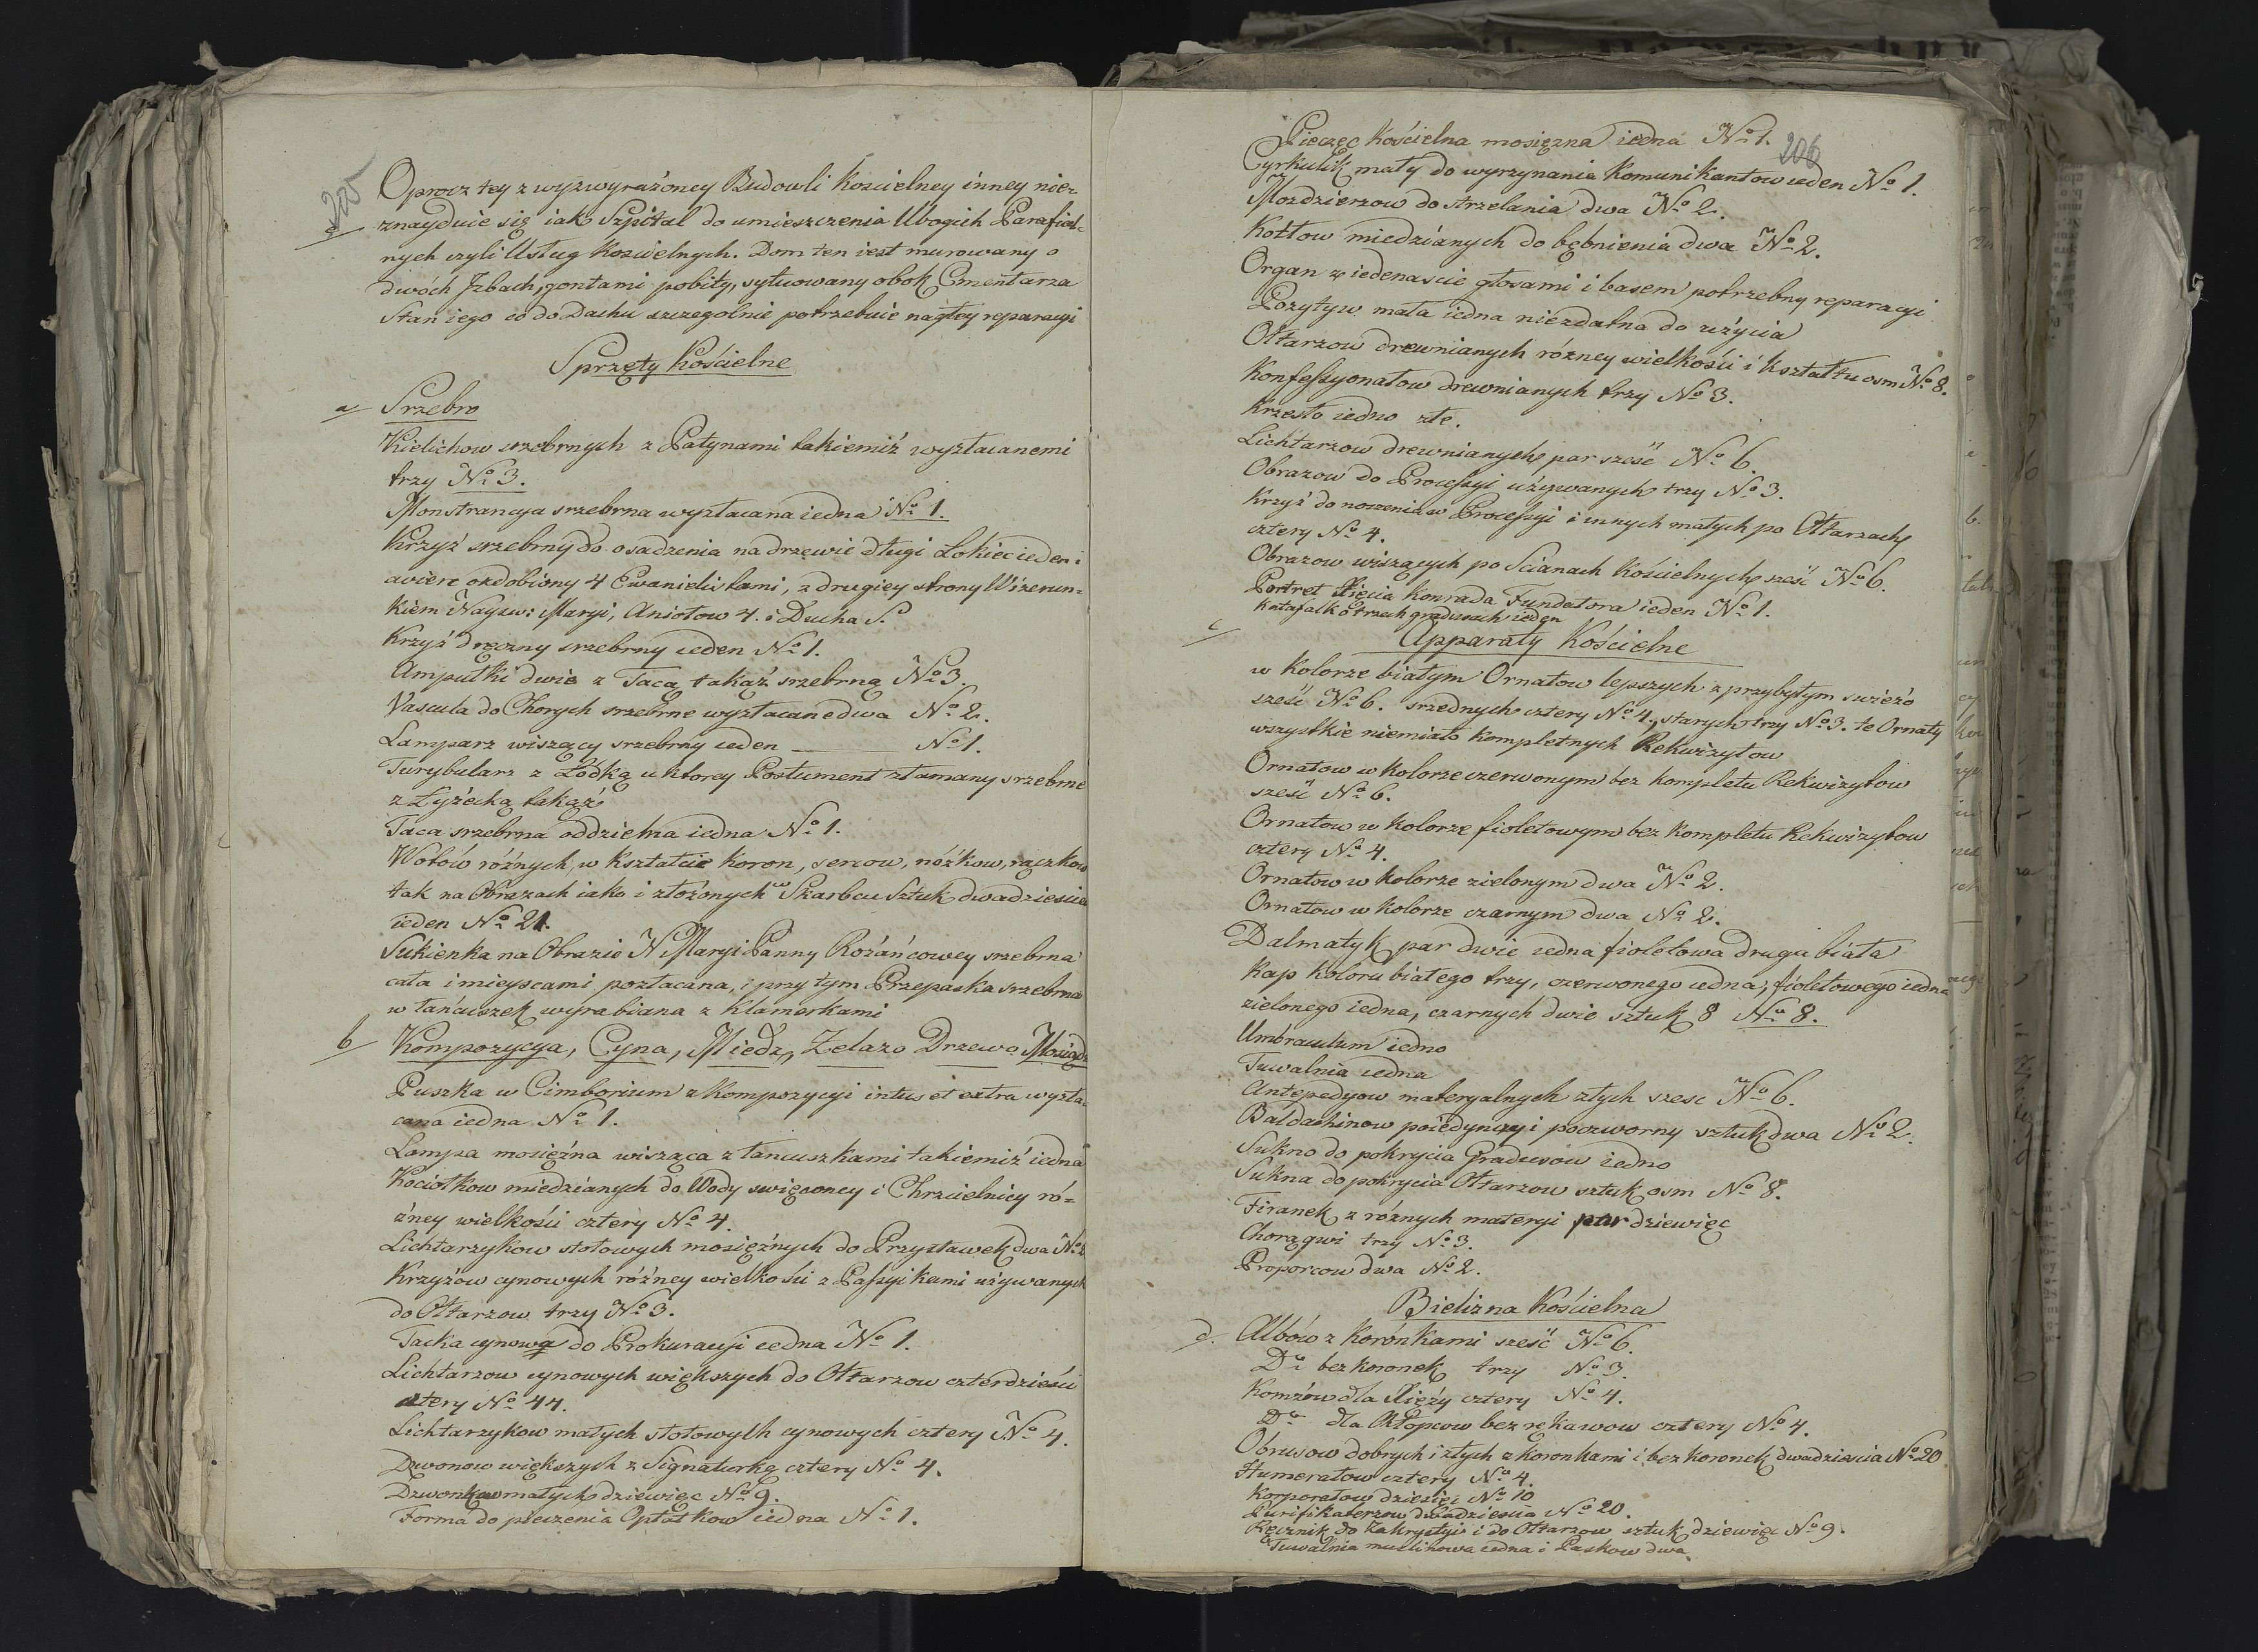 205
Oprocz tey z wyzwyrażoney Budowli koscielney inney nie-
znayduie się iak Szpital do umieszczenia Ubogich Parafial-
nych czyli Usług koscielnych. Dom ten iest murowany o
dwóch Jzbach, gontami pobity, sytuowany obok Cmentarza
Stan iego co do Dachu szczegolnie potrzebuie nagłey reparacyi
Sprzęty Kościelne
a/ Srzebro
Kielichow srzebrnych z Patynami takiemiż wyzłacanemi
trzy No 3.
Monstrancya srzebrna wyzłacana iedna No 1.
Krzyż srzebrny do osadzenia na drzewie długi Łokiec ieden i
cwierc ozdobiony 4 Ewanielistami, z drugiey strony Wizerun-
kiem Nayśw: Maryi, Aniołow 4. i Ducha S.
Krzyż dręczny srzebrny ieden No 1.
Ampułki dwie z Tacą takąż srzebrną No 3.
Vascula do Chorych srzebrne wyzłacane dwa No 2.
Lamparz wiszący srzebrny ieden No 1.
Turybularz z Łodką u ktorey Postument złamany srzebrne
z Łyżecką takąż
Taca srzebrna oddzielna iedna No 1.
Wotów różnych w kształcie koron, sercow, nóżkow, rączkow
tak na Obrazach iako i złożonych w Skarbcu Sztuk dwadziescia
ieden No 21.
Sukienka na Obrazie N Maryi Panny Rożańcowey srzebrna
cała i mieyscami pozłacana, i przytym Przepaska srzebrna
w łańcuszek wyrabiana z klamerkami
b/ Kompozycya, Cyna, Miedz, Zelazo Drzewo, Mosiądz
Puszka w Cimborium z kompozycyi intus et extra wyzła-
cana iedna No 1.
Lampa mosiężna wisząca z łancuszkami takiemiż iedna
Kociołkow miedzianych do Wody swięconey i Chrzcielnicy ró-
żney wielkości cztery No 4.
Lichtarzykow stołowych mosiężnych do Przystawek dwa No 2
Krzyżow cynowych różney wielkości z Passyikami używanych
do Ołtarzow trzy No 3.
Tacka cynowa do Prokuracyi iedna No 1.
Lichtarzow cynowych większych do Ołtarzow czterdziesci
cztery No 44.
Lichtarzykow małych stołowych cynowych cztery No 4.
Dzwonow większych z Signaturką cztery No 4.
Dzwonkow małych dziewięc No 9.
Forma do pieczenia Opłatkow iedna No 1.
206
Pieczęc kościelna mosiężna iedna No 1.
Cyrkulik mały do wyrzynania komunikantow ieden No 1.
Mozdzierzow do strzelania dwa No 2.
Kotłow miedzianych do bębnienia dwa No 2.
Organ z iedenascie głosami i basem potrzebny reparacyi
Pozytyw mała iedna niezdatna do użycia
Ołtarzow drewnianych rózney wielkości i kształtu osm No 8.
Konfessyonałow drewnianych trzy No 3.
Krzesło iedno złe.
Lichtarzow drewnianych par sześć No 6.
Obrazow do Processyi używanych trzy No 3.
Krzyż do noszenia w Processyi i innych małych po Ołtarzach
cztery No 4.
Obrazow wiszących po Scianach kościelnych sześć No 6.
Portret Xięcia Konrada Fundatora ieden No 1.
Katafalk o trzech gradusach ieden
c/ Apparaty Kościelne
w kolorze białym Ornatow lepszych z przybytym swieżo
sześć No 6. srzednych cztery No 4., starych trzy No 3. te Ornaty
wszystkie niemiało kompletnych Rekwizytow
Ornatow w kolorze czerwonym bez kompletu Rekwizytow
sześć No 6.
Ornatow w kolorze fioletowym bez kompletu Rekwizytow
cztery No 4.
Ornatow w kolorze zielonym dwa No 2.
Ornatow w kolorze czarnym dwa No 2.
Dalmatyk par dwie iedna fioletowa druga biała
Kap koloru białego trzy, czerwonego iedna, fioletowego iedna
zielonego iedna, czarnych dwie sztuk 8 No 8.
Umbraculum iedno
Tuwalnia iedna
Antepedyow materyalnych złych szesc No 6.
Baldachinow poiedynczy i poczworny sztuk dwa No 2.
Sukno do pokrycia Gradusow iedno
Sukna do pokrycia Ołtarzow sztuk osm No 8.
Firanek z róznych materyi par dziewięc
Chorągwi trzy No 3.
Proporcow dwa No 2.
Bielizna Kościelna
d. Albów z koronkami sześć No 6.
Do bez koronek trzy No 3.
Komżow dla Xięży cztery No 4.
Do dla Chłopcow bez rękawow cztery No 4.
Obrusow dobrych i złych z koronkami i bez koronek dwadziescia No 20
Humerałow cztery No 4.
Korporałow dziesięć No 10
Purifikaterzow dwadziescia No 20.
Ręcznik do Zakrystyi i do Ołtarzow sztuk dziewięc No 9.
Tuwalnia muslinowa iedna i Paskow dwa.